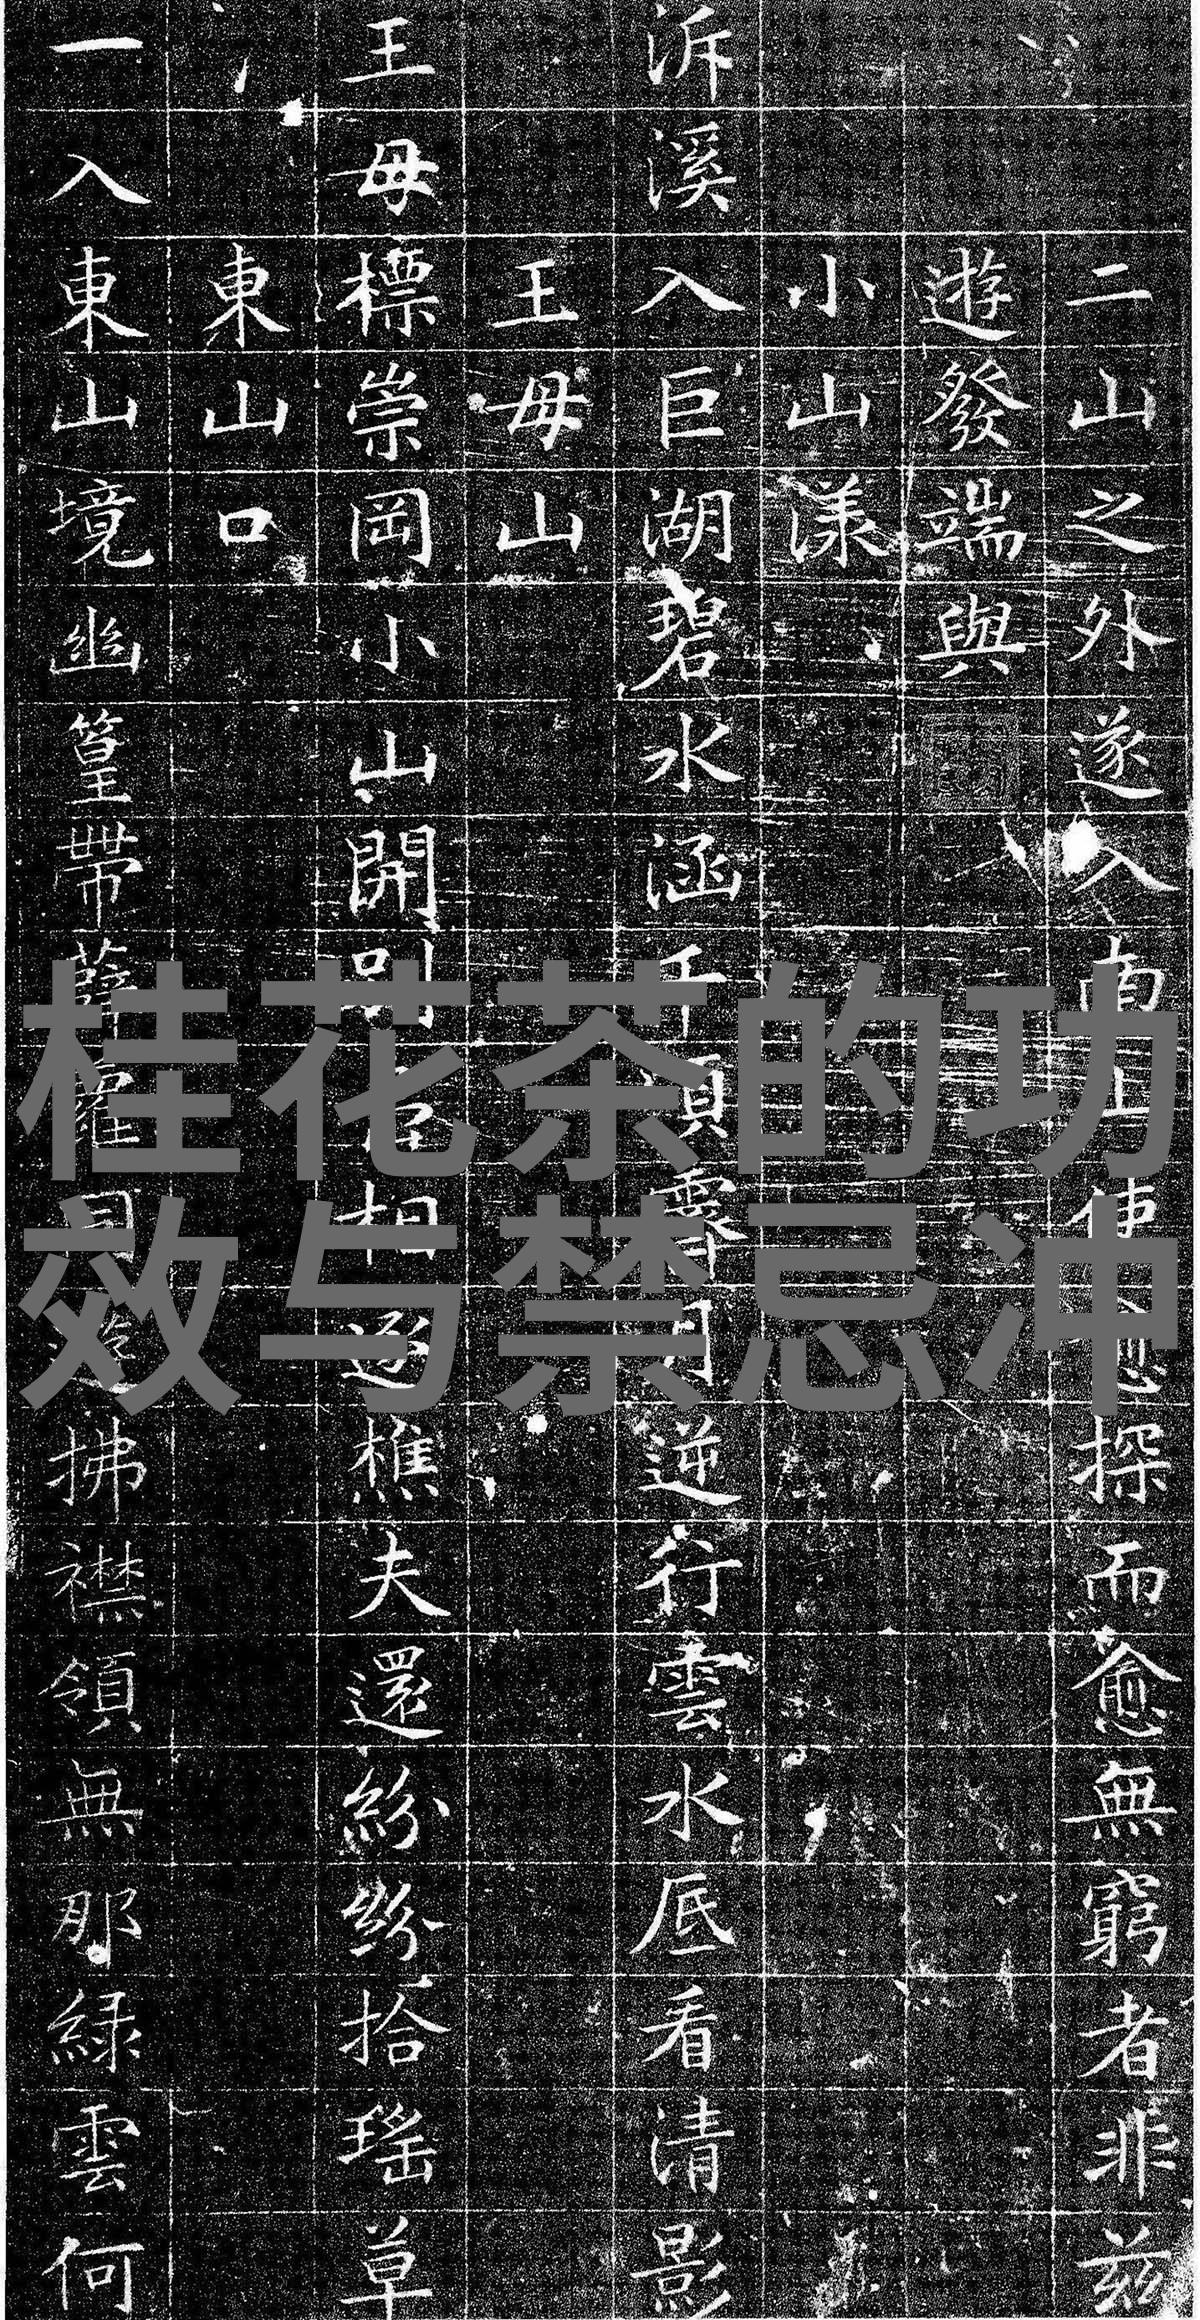 二山之外遂入南山使愈探而愈無窮者非兹
遊發端與
小山漾
泝溪入巨湖碧水涵千頃霽月逆行雲水底看清影
王母山
王母標崇岡小山開別相逐樵夫還紛紛拾瑤草
東山口
一入東山境幽篁帶薜蘿同遊拂襟領無那緑雲何
桂花茶的功
效与禁忌冲